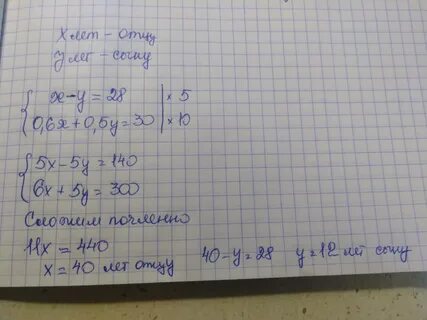 x лет - отцу
y лет - сыну
x - y = 28 | × 5
0,6x + 0,5y = 30 | × 10
5x - 5y = 140
6x + 5y = 300
Сложим почленно
11x = 440
x = 40 лет отцу
40 - y = 28 y = 12 лет сыну